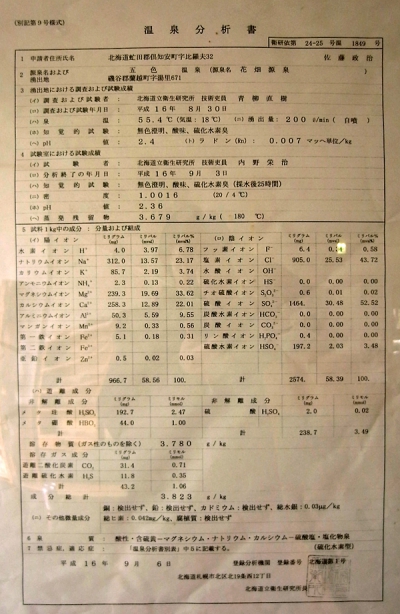 (別記第9号様式)
温泉分析書
衛研依第 24-25 号温 1849 号
1 申請者住所氏名 北海道虻田郡倶知安町字比羅夫32 佐藤政治
2 源泉名および湧出地 五色 温泉 (源泉名 花畑源泉)
磯谷郡蘭越町字湯里671
3 湧出地における調査および試験成績
(イ) 調査および試験者 北海道立衛生研究所 技術吏員 青柳直樹
(ロ) 調査および試験年月日 平成 16年 8月 30日
(ハ) 泉温 55.4℃(気温:18℃) (ニ) 湧出量: 200 ℓ/min (自噴)
(ホ) 知覚的試験 無色澄明、酸味、硫化水素臭
(ヘ) pH値 2.4 (ト) ラドン(Rn): 0.007 マッヘ単位/kg
4 試験室における試験成績
(イ) 試験者 北海道立衛生研究所 技術吏員 内野栄治
(ロ) 分析終了の年月日 平成 16年 9月 3日
(ハ) 知覚的試験 無色澄明、酸味、硫化水素臭 (採水後25時間)
(ニ) 密度 1.0016 (20/4℃)
(ホ) pH値 2.36
(ヘ) 蒸発残留物 3.679 g/kg (180 ℃)
5 試料1kg中の成分:分量および組成
(イ) 陽イオン ミリグラム(mg) ミリバル(mval) ミリバル%(mval%) (ロ) 陰イオン ミリグラム(mg) ミリバル(mval) ミリバル%(mval%)
水素イオン H⁺ 4.0 3.97 6.78 フッ素イオン F⁻ 6.4 0.34 0.58
ナトリウムイオン Na⁺ 312.0 13.57 23.17 塩素イオン Cl⁻ 905.0 25.53 43.72
カリウムイオン K⁺ 85.7 2.19 3.74 水酸イオン OH⁻
アンモニウムイオン NH₄⁺ 2.3 0.13 0.22 硫化水素イオン HS⁻ 0.0 0.00 0.00
マグネシウムイオン Mg²⁺ 239.3 19.69 33.62 チオ硫酸イオン S₂O₃²⁻ 0.6 0.01 0.02
カルシウムイオン Ca²⁺ 258.3 12.89 22.01 硫酸イオン SO₄²⁻ 1464. 30.48 52.52
アルミニウムイオン Al³⁺ 50.3 5.59 9.55 炭酸水素イオン HCO₃⁻ 0.0 0.00 0.00
マンガンイオン Mn²⁺ 9.2 0.33 0.56 炭酸イオン CO₃²⁻ 0.0 0.00 0.00
第一鉄イオン Fe²⁺ 5.1 0.18 0.31 リン酸イオン H₂PO₄⁻ 0.4 0.00 0.00
第二鉄イオン Fe³⁺ 硫酸水素イオン HSO₄⁻ 197.2 2.03 3.48
亜鉛イオン Zn²⁺ 0.5 0.02 0.03
計 966.7 58.56 100. 計 2574. 58.39 100.
(ハ) 遊離成分
非解離成分 ミリグラム(mg) ミリモル(mmol) 非解離成分 ミリグラム(mg) ミリモル(mmol)
メタ珪酸 H₂SiO₃ 192.7 2.47 硫酸 H₂SO₄ 2.0 0.02
メタ硼酸 HBO₂ 44.0 1.00
計 238.7 3.49
溶存物質(ガス性のものを除く) 3.780 g/kg
溶存ガス成分 ミリグラム(mg) ミリモル(mmol)
遊離二酸化炭素 CO₂ 31.4 0.71
遊離硫化水素 H₂S 11.8 0.35
計 43.2 1.06
成分総計 3.823 g/kg
銅:検出せず、鉛:検出せず、カドミウム:検出せず、総水銀:0.03μg/kg
(ニ) その他微量成分 総ヒ素:0.042mg/kg、腐植質:検出せず
6 泉質 酸性・含硫黄-マグネシウム・ナトリウム・カルシウム-硫酸塩・塩化物泉
(硫化水素型)
7 禁忌症、適応症 「温泉分析書別表」中5に記載する。
平成 16年 9月 6日 登録分析機関 登録番号 北海道第1号
北海道札幌市北区北19条西12丁目
北海道立衛生研究所長